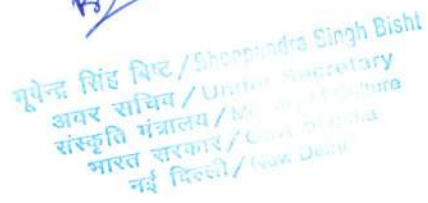 भूपेन्द्र सिंह बिष्ट / Bhoopendra Singh Bisht
अवर सचिव / Under Secretary
संस्कृति मंत्रालय / M/o Culture
भारत सरकार / Govt. of India
नई दिल्ली / New Delhi